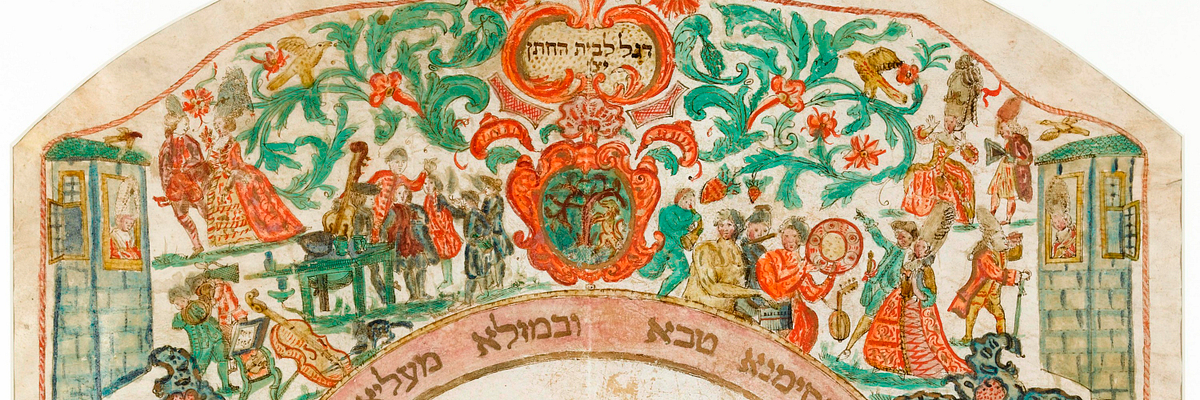 דגל לבית החתן
יצ"ו
סימנא טבא ובמזלא מעלי